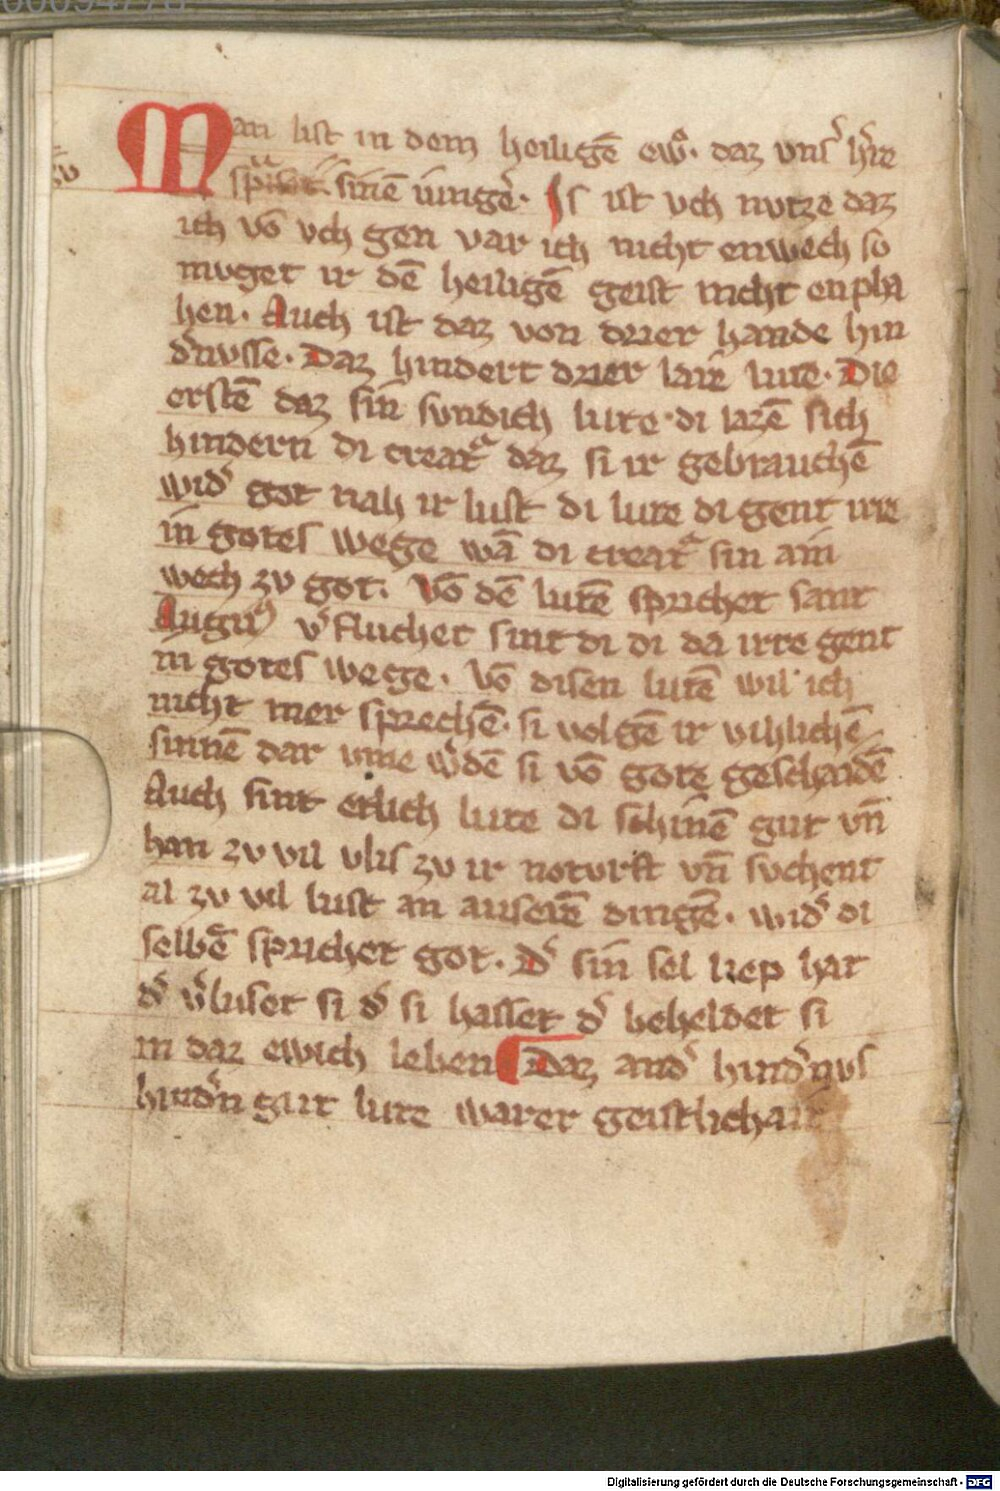 Man list in dem heiligē ewͦ. daz vnsˀ hˀre
zv̄ sinē iungēˀ. Is ist vch nvtze daz
ich vō vch gen var ich nicht enwech so
mvget ir dē heiligē geist nicht enpha
hen. Auch ist daz von drier hande hin
dˀnvsse. Daz hindert drier laie lute. Die
erstē daz sin svndich lute di lazē sich
hindern di creatᵃ daz si ir gebrauchē
widˀ got nah ir lust di lute di gent irre
in gotes wege wā di creatᵃ sin ain
wech zv got. Vō dē lutē sprichet sant
Augu⁹ vˀfluchet sint di di da irre gent
in gotes wege. Vō disen lutē wil ich
nicht mer sprechē. si volgē ir vihlichē
sinnē dar vme wˀdē si vō gote geschaidē
Auch sint etlich lute di schinē gut vn̄
han zv vil vlis zv ir noturft vn̄ svchent
al zv vil lust an auserē dingē. widˀ di
selbē sprichet got. Dˀ sin sel liep hat
dˀ vˀluset si dˀ si hasset dˀ beheldet si
in daz ewich leben ¶ Daz andˀ hindˀnvs
hindˀn gut lute warer geistlichait